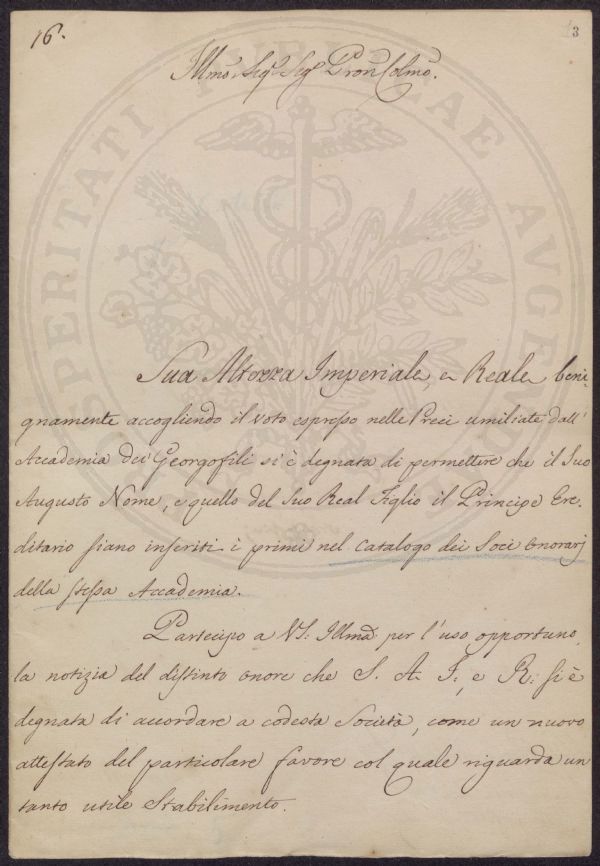 16.
3
Illmo. Sigr. Sigr. Pron Colmo.
PROSPERITATI PUBLICAE AVGENDAE
Sua Altezza Imperiale, e Reale beni-
gnamente accogliendo il voto espresso nelle Preci umiliate dall'
Accademia dei Georgofili si è degnata di permettere che il Suo
Augusto Nome, e quello del Suo Real Figlio il Principe Ere-
ditario siano inseriti i primi nel Catalogo dei Soci Onorarj
della stessa Accademia.
Partecipo a VS. Illma per l'uso opportuno
la notizia del distinto onore che S. A. I., e R. si è
degnata di accordare a codesta Società, come un nuovo
attestato del particolare favore col quale riguarda un
tanto utile Stabilimento.